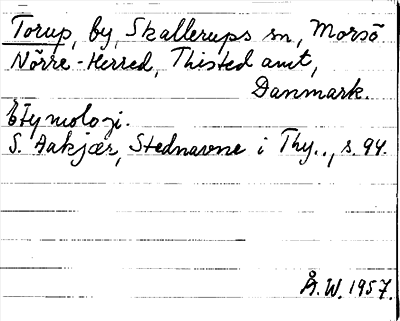 Torup, by, Skallerups sn, Morsö
Nörre-Herred, Thisted amt,
Danmark.
Etymologi.
S. Aakjær, Stednavne i Thy.., s. 94.
Å.W. 1957.